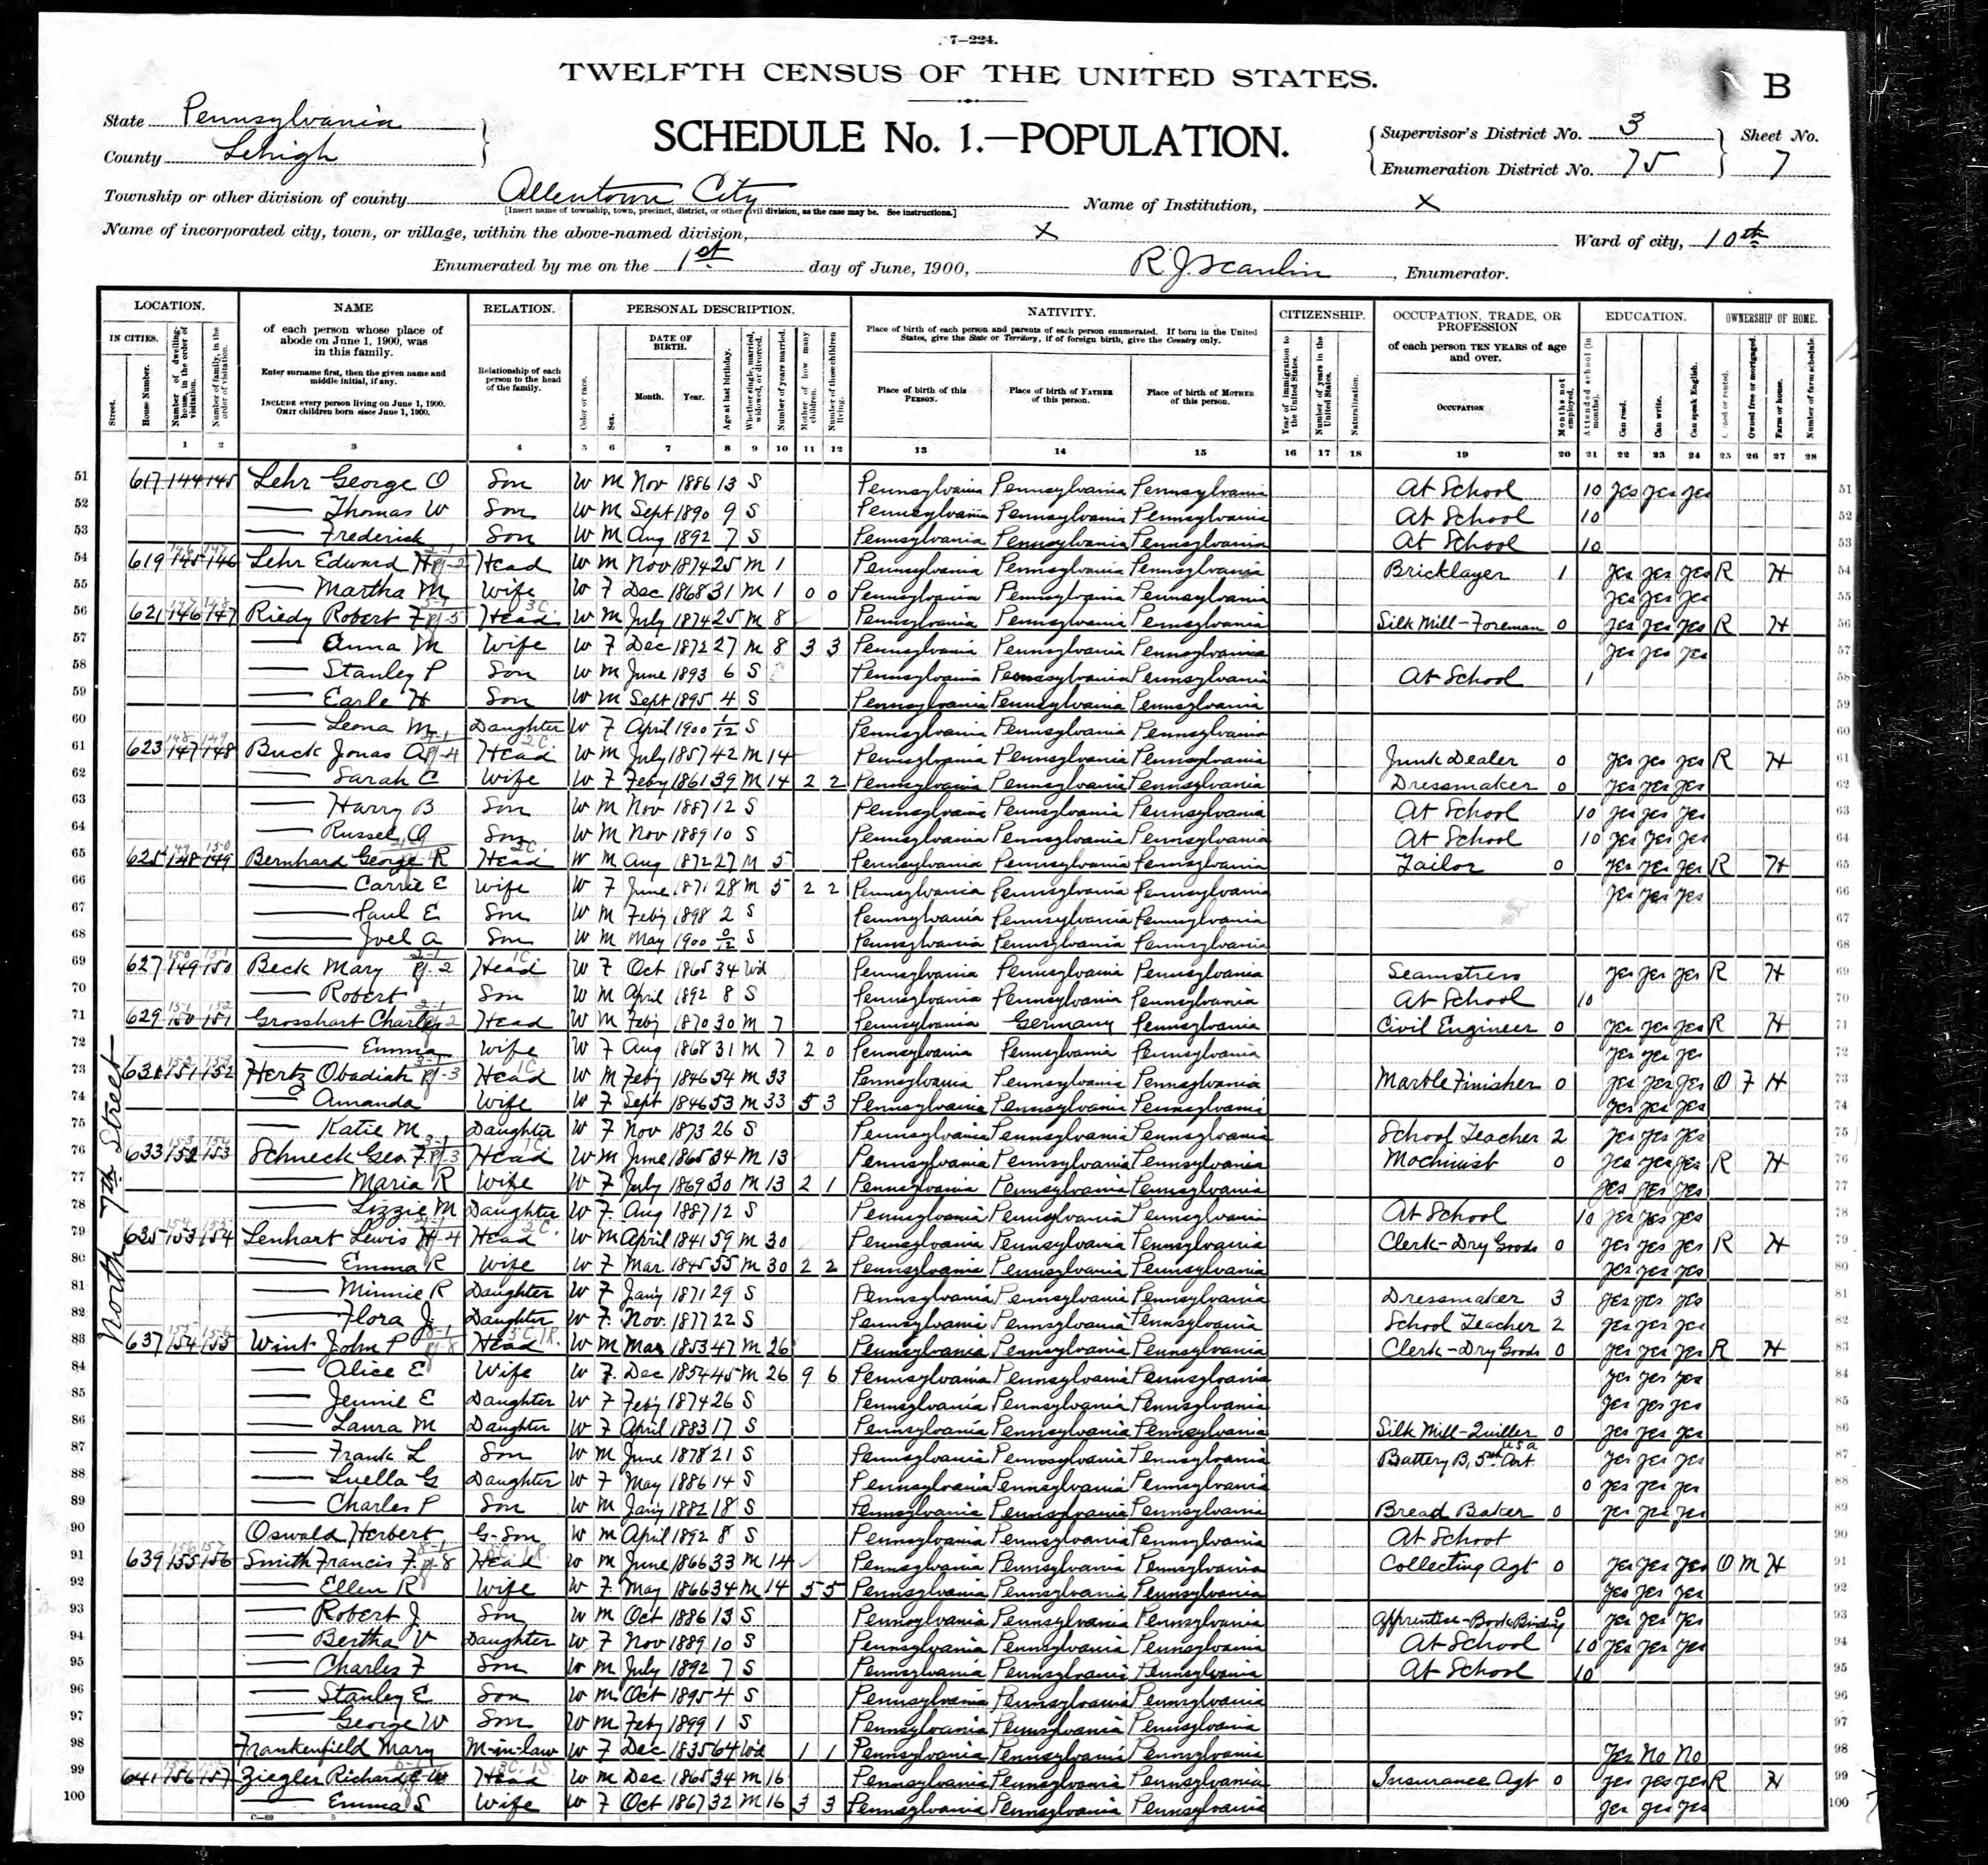 7—224.
TWELFTH CENSUS OF THE UNITED STATES.
B
State Pennsylvania
County Lehigh
SCHEDULE No. 1.—POPULATION.
Supervisor's District No. 3
Enumeration District No. 75
Sheet No.
7
Township or other division of county Allentown City
[Insert name of township, town, precinct, district, or other civil division, as the case may be. See instructions.]
Name of Institution, X
Name of incorporated city, town, or village, within the above-named division, X
Ward of city, 10th
Enumerated by me on the 1st day of June, 1900, R. J. Scanlin, Enumerator.
LOCATION. NAME RELATION. PERSONAL DESCRIPTION. NATIVITY. CITIZENSHIP. OCCUPATION, TRADE, OR PROFESSION EDUCATION. OWNERSHIP OF HOME.
IN CITIES.
Street.
House Number.
Number of dwelling-house, in the order of visitation.
Number of family, in the order of visitation.
of each person whose place of abode on June 1, 1900, was in this family.
Enter surname first, then the given name and middle initial, if any.
INCLUDE every person living on June 1, 1900.
OMIT children born since June 1, 1900.
Relationship of each person to the head of the family.
Color or race.
Sex.
DATE OF BIRTH.
Month. Year.
Age at last birthday.
Whether single, married, widowed, or divorced.
Number of years married.
Mother of how many children.
Number of these children living.
Place of birth of each person and parents of each person enumerated. If born in the United States, give the State or Territory; if of foreign birth, give the Country only.
Place of birth of this PERSON.
Place of birth of FATHER of this person.
Place of birth of MOTHER of this person.
Year of immigration to the United States.
Number of years in the United States.
Naturalization.
of each person TEN YEARS of age and over.
OCCUPATION
Months not employed.
Attended school (in months).
Can read.
Can write.
Can speak English.
Owned or rented.
Owned free or mortgaged.
Farm or house.
Number of farm schedule.
1 2 3 4 5 6 7 8 9 10 11 12 13 14 15 16 17 18 19 20 21 22 23 24 25 26 27 28
North 7th Street
51 617 144 145 Lehr George O Son W M Nov 1886 13 S Pennsylvania Pennsylvania Pennsylvania At School 10 yes yes yes 51
52 — Thomas W Son W M Sept 1890 9 S Pennsylvania Pennsylvania Pennsylvania At School 10 52
53 — Frederick Son W M Aug 1892 7 S Pennsylvania Pennsylvania Pennsylvania At School 10 53
54 619 145 146 Lehr Edward H Head W M Nov 1874 25 M 1 Pennsylvania Pennsylvania Pennsylvania Bricklayer 1 yes yes yes R H 54
55 — Martha M Wife W F Dec 1868 31 M 1 0 0 Pennsylvania Pennsylvania Pennsylvania yes yes yes 55
56 621 146 147 Riedy Robert F Head W M July 1874 25 M 8 Pennsylvania Pennsylvania Pennsylvania Silk Mill-Foreman 0 yes yes yes R H 56
57 — Anna M Wife W F Dec 1872 27 M 8 3 3 Pennsylvania Pennsylvania Pennsylvania yes yes yes 57
58 — Stanley P Son W M June 1893 6 S Pennsylvania Pennsylvania Pennsylvania At School 1 58
59 — Earle H Son W M Sept 1895 4 S Pennsylvania Pennsylvania Pennsylvania 59
60 — Leona M Daughter W F April 1900 1/12 S Pennsylvania Pennsylvania Pennsylvania 60
61 623 147 148 Buck Jonas A Head W M July 1857 42 M 14 Pennsylvania Pennsylvania Pennsylvania Junk Dealer 0 yes yes yes R H 61
62 — Sarah C Wife W F Feby 1861 39 M 14 2 2 Pennsylvania Pennsylvania Pennsylvania Dressmaker 0 yes yes yes 62
63 — Harry B Son W M Nov 1887 12 S Pennsylvania Pennsylvania Pennsylvania At School 10 yes yes yes 63
64 — Russel A Son W M Nov 1889 10 S Pennsylvania Pennsylvania Pennsylvania At School 10 yes yes yes 64
65 625 148 149 Bernhard George R Head W M Aug 1872 27 M 5 Pennsylvania Pennsylvania Pennsylvania Tailor 0 yes yes yes R H 65
66 — Carrie E Wife W F June 1871 28 M 5 2 2 Pennsylvania Pennsylvania Pennsylvania yes yes yes 66
67 — Paul E Son W M Feby 1898 2 S Pennsylvania Pennsylvania Pennsylvania 67
68 — Joel A Son W M May 1900 0/12 S Pennsylvania Pennsylvania Pennsylvania 68
69 627 149 150 Beck Mary Head W F Oct 1865 34 Wd Pennsylvania Pennsylvania Pennsylvania Seamstress yes yes yes R H 69
70 — Robert Son W M April 1892 8 S Pennsylvania Pennsylvania Pennsylvania At School 10 70
71 629 150 151 Grosshart Charles Head W M Feby 1870 30 M 7 Pennsylvania Germany Pennsylvania Civil Engineer 0 yes yes yes R H 71
72 — Emma Wife W F Aug 1868 31 M 7 2 0 Pennsylvania Pennsylvania Pennsylvania yes yes yes 72
73 631 151 152 Hertz Obadiah Head W M Feby 1846 54 M 33 Pennsylvania Pennsylvania Pennsylvania Marble Finisher 0 yes yes yes O F H 73
74 — Amanda Wife W F Sept 1846 53 M 33 5 3 Pennsylvania Pennsylvania Pennsylvania yes yes yes 74
75 — Katie M Daughter W F Nov 1873 26 S Pennsylvania Pennsylvania Pennsylvania School Teacher 2 yes yes yes 75
76 633 152 153 Schneck Geo. F Head W M June 1865 34 M 13 Pennsylvania Pennsylvania Pennsylvania Mochinist 0 yes yes yes R H 76
77 — Maria R Wife W F July 1869 30 M 13 2 1 Pennsylvania Pennsylvania Pennsylvania yes yes yes 77
78 — Lizzie M Daughter W F Aug 1887 12 S Pennsylvania Pennsylvania Pennsylvania At School 10 yes yes yes 78
79 635 153 154 Lenhart Lewis H Head W M April 1841 59 M 30 Pennsylvania Pennsylvania Pennsylvania Clerk-Dry Goods 0 yes yes yes R H 79
80 — Emma R Wife W F Mar. 1845 55 M 30 2 2 Pennsylvania Pennsylvania Pennsylvania yes yes yes 80
81 — Minnie R Daughter W F Jany 1871 29 S Pennsylvania Pennsylvania Pennsylvania Dressmaker 3 yes yes yes 81
82 — Flora J Daughter W F Nov. 1877 22 S Pennsylvania Pennsylvania Pennsylvania School Teacher 2 yes yes yes 82
83 637 154 155 Wint John P Head W M Mar 1853 47 M 26 Pennsylvania Pennsylvania Pennsylvania Clerk-Dry Goods 0 yes yes yes R H 83
84 — Alice E Wife W F Dec 1854 45 M 26 9 6 Pennsylvania Pennsylvania Pennsylvania yes yes yes 84
85 — Jennie E Daughter W F Feby 1874 26 S Pennsylvania Pennsylvania Pennsylvania yes yes yes 85
86 — Laura M Daughter W F April 1883 17 S Pennsylvania Pennsylvania Pennsylvania Silk Mill-Quiller 0 yes yes yes 86
87 — Frank L Son W M June 1878 21 S Pennsylvania Pennsylvania Pennsylvania Battery B, 5th Art USA yes yes yes 87
88 — Luella G Daughter W F May 1886 14 S Pennsylvania Pennsylvania Pennsylvania 0 yes yes yes 88
89 — Charles P Son W M Jany 1882 18 S Pennsylvania Pennsylvania Pennsylvania Bread Baker 0 yes yes yes 89
90 Oswald Herbert G-Son W M April 1892 8 S Pennsylvania Pennsylvania Pennsylvania At School 90
91 639 155 156 Smith Francis F. Head W M June 1866 33 M 14 Pennsylvania Pennsylvania Pennsylvania Collecting Agt 0 yes yes yes O M H 91
92 — Ellen R Wife W F May 1866 34 M 14 5 5 Pennsylvania Pennsylvania Pennsylvania yes yes yes 92
93 — Robert J Son W M Oct 1886 13 S Pennsylvania Pennsylvania Pennsylvania Apprentice-Book Binding 0 yes yes yes 93
94 — Bertha V Daughter W F Nov 1889 10 S Pennsylvania Pennsylvania Pennsylvania At School 10 yes yes yes 94
95 — Charles F Son W M July 1892 7 S Pennsylvania Pennsylvania Pennsylvania At School 10 95
96 — Stanley E Son W M Oct 1895 4 S Pennsylvania Pennsylvania Pennsylvania 96
97 — George W Son W M Feby 1899 1 S Pennsylvania Pennsylvania Pennsylvania 97
98 Frankenfield Mary M-in-law W F Dec 1835 64 Wd 1 1 Pennsylvania Pennsylvania Pennsylvania yes No No 98
99 641 156 157 Ziegler Richard Head W M Dec 1865 34 M 16 Pennsylvania Pennsylvania Pennsylvania Insurance Agt 0 yes yes yes R H 99
100 — Emma S Wife W F Oct 1867 32 M 16 3 3 Pennsylvania Pennsylvania Pennsylvania yes yes yes 100
C—69